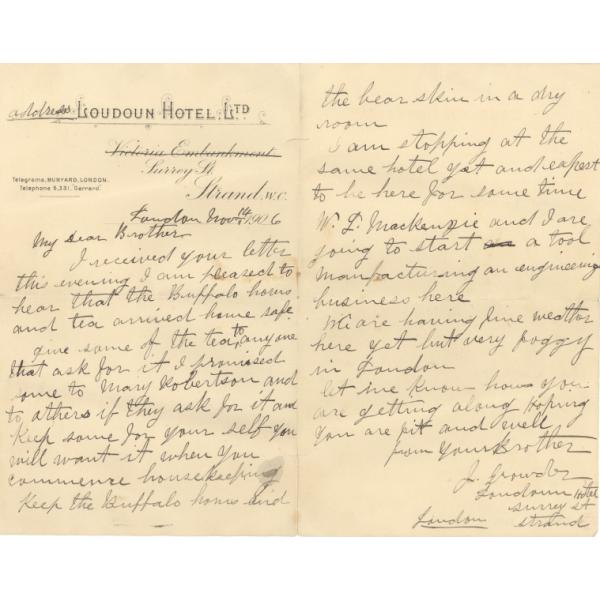 address. LOUDOUN HOTEL, LTD
Victoria Embankment
Surrey St.
Strand W.C.
Telegrams, MUNYARD, LONDON.
Telephone 5,331, "Gerrard."
London Nov. 1st 1906
My Dear Brother
I received your letter
this evening I am pleased to
hear that the Buffalo horns
and tea arrived home safe.
give some of the tea to anyone
that ask for it I promised
some to Mary Robertson and
to others if they ask for it and
keep some for your self you
will want it when you
commence housekeeping
keep the Buffalo horns and
the bear skin in a dry
room
I am stopping at the
same hotel yet and expect
to be here for some time
W. D. Mackenzie and I are
going to start a tool
manfacturing an engineering
business here
We are having fine weather
here yet but very foggy
in London
let me know how you
are getting along Hoping
you are fit and well
from Your Brother
J. Crowder
Loudoun Hotel
Surrey St
Strand
London